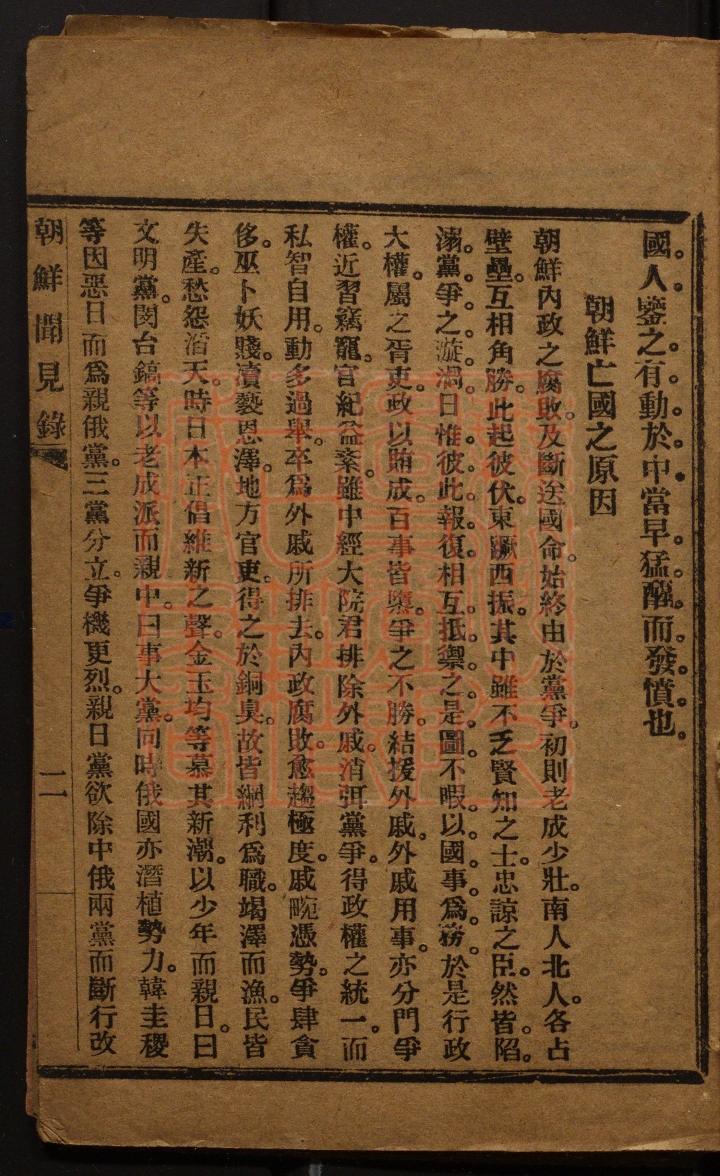 國人鑒之有動於中當早猛醒而發憤也。
朝鮮亡國之原因
朝鮮內政之腐敗。及斷送國命。始終由於黨爭。初則老成少壯。南人北人。各占
壁壘。互相角勝。此起彼伏。東蹶西振。其中雖不乏賢知之士。忠諒之臣。然皆陷。
溺。黨。爭。之。漩。渦。日惟彼此。報。復。相互抵。禦。之。是。圖。不暇。以。國。事。爲。務。於是行政
大權。屬之胥吏。政以賄成。百事皆隳。爭之不勝。結援外戚。外戚用事。亦分門爭
權。近習竊寵。官紀益紊。雖中經大院君排除外戚。消弭黨爭。得政權之統一。而
私智自用。動多過舉。卒爲外戚所排去。內政腐敗。愈趨極度。戚畹憑勢。爭肆貪
侈。巫卜妖賤。瀆褻恩澤。地方官吏。得之於銅臭。故皆網利爲職。竭澤而漁。民皆
失產。愁怨滔天。時日本正倡維新之聲。金玉均等慕其新潮。以少年而親日。曰
文明黨。閔台鎬等以老成派而親中。曰事大黨。同時俄國亦潛植勢力。韓圭稷
等因惡日而爲親俄黨。三黨分立。爭機更烈。親日黨欲除中俄兩黨而斷行改
朝鮮聞見錄
二